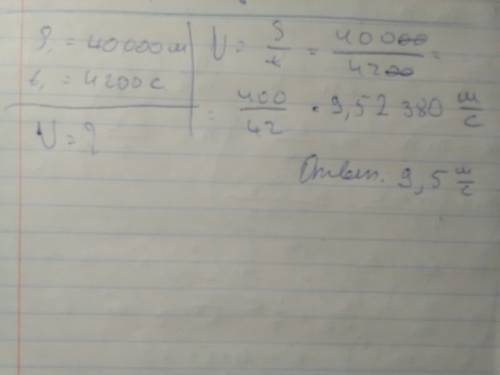 S₁ = 40000м
t₁ = 4200с
V = ?
V = S/t = 40000/4200 =
= 400/42 = 9,52 380 м/с
Ответ. 9,5 м/с